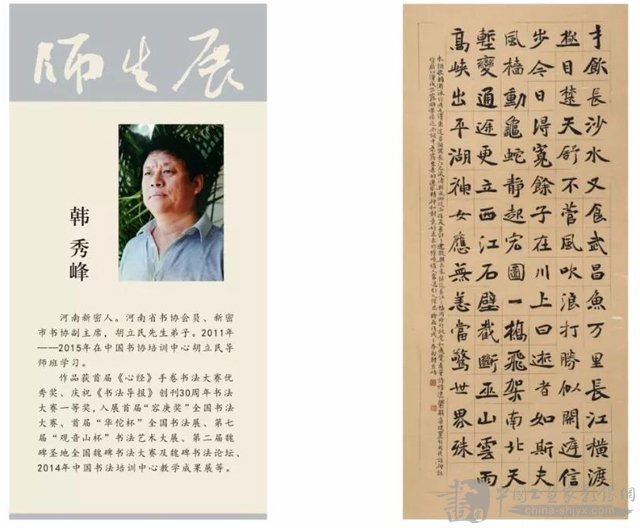 师生展
韩秀峰
河南新密人。河南省书协会员、新密
市书协副主席,胡立民先生弟子。2011年
——2015年在中国书协培训中心胡立民导
师班学习。
作品获首届《心经》手卷书法大赛优
秀奖、庆祝《书法导报》创刊30周年书法
大赛一等奖,入展首届“容庚奖”全国书法
大赛、首届“华佗杯”全国书法展、第七
届“观音山杯”书法艺术大展、第二届魏
碑圣地全国魏碑书法大赛及魏碑书法论坛、
2014年中国书法培训中心教学成果展等。
才飲長沙水又食武昌魚万里長江橫渡
極目楚天舒不管風吹浪打勝似閑庭信
步今日得寬餘子在川上曰逝者如斯夫
風檣動龜蛇靜起宏圖一橋飛架南北天
塹變通途更立西江石壁截斷巫山雲雨
高峽出平湖神女應無恙當驚世界殊
china-shjyx.com